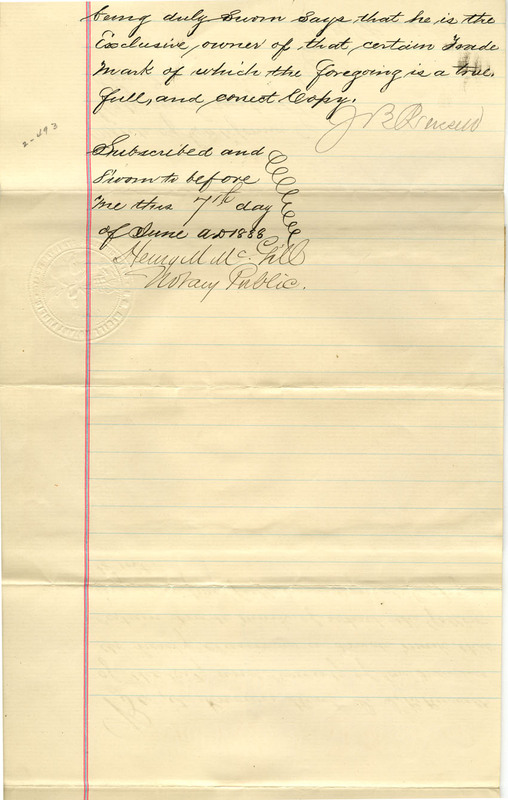 being duly Sworn Says that he is the
Exclusive owner of that certain Trade
Mark of which the foregoing is a true,
full, and corect Copy.
J B
2-493
Subscribed and
Sworn to before
me this 7th day
of June A.D 1888
Henry M McGill
Notary Public.